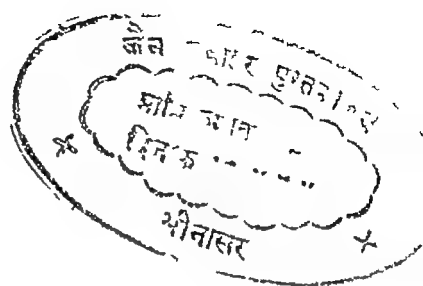 जैन पुस्तकालय
प्राप्ति स्थान
दिनांक ........
भीनासर